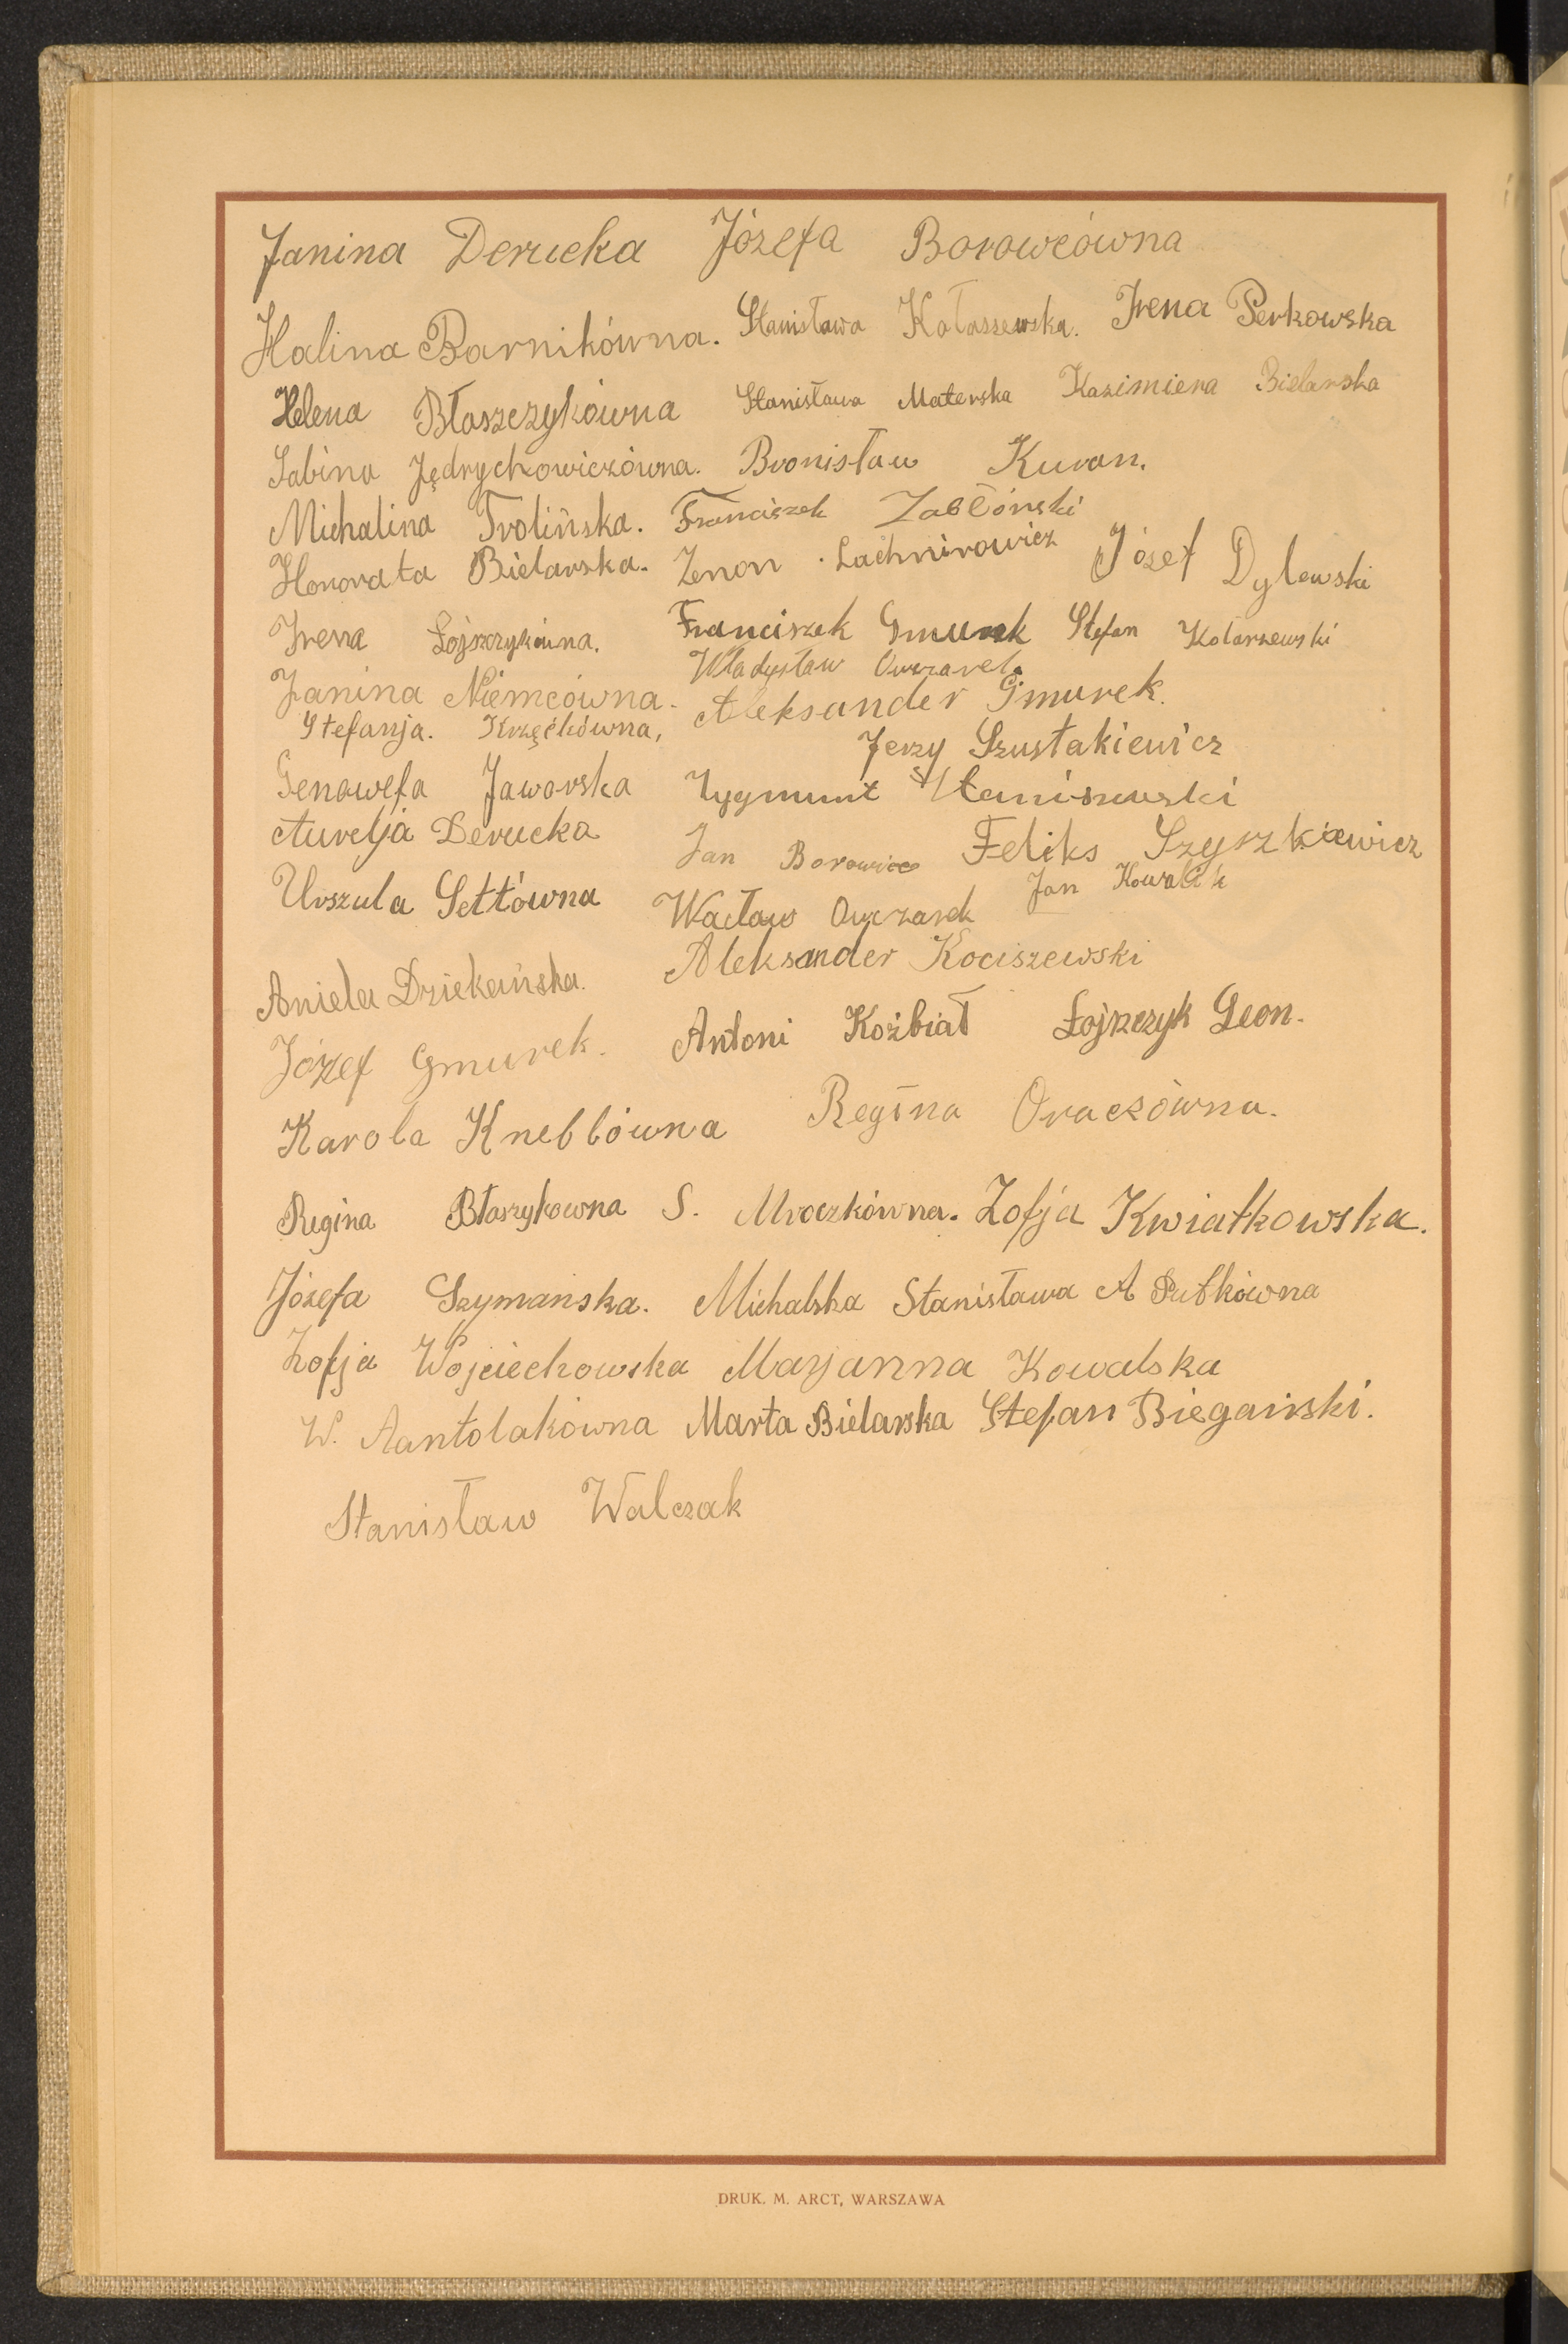 Janina Derucka Józefa Borowcówna
Halina Barnikówna. Stanisława Kołaszewska. Irena Perkowska
Helena Błaszczykówna Stanisława Materska Kazimiera Bielarska
Sabina Jędrychowiczówna. Bronisław Kuran.
Michalina Trolińska. Franciszek Zabłóński
Honorata Bielarska. Zenon Lachnirowicz Józef Dylewski
Irena Łojszczykówna. Franciszek Gmurek Stefan Kolarzewski
Władysław Owczarek
Janina Niemcówna. Aleksander Gmurek.
Stefanja. Krzęćkówna,
Jerzy Szustakiewicz
Genowefa Jaworska Zygmunt Staniszewski
Aurelja Derucka Jan Borowiec Feliks Szyszkiewicz
Urszula Settówna Wacław Owczarek Jan Kowalik
Aniela Dziekańska. Aleksander Kociszewski
Józef Gmurek. Antoni Koźbiał Łojszczyk Leon.
Karola Kneblówna Regina Oraczówna.
Regina Błaszykowna S. Mroczkówna. Zofja Kwiatkowska.
Józefa Szymanska. Michalska Stanisława A Rutkówna
Zofja Wojciechowska Marjanna Kowalska
W. Aantolakówna Marta Bielarska Stefan Biegański.
Stanisław Walczak
DRUK. M. ARCT, WARSZAWA